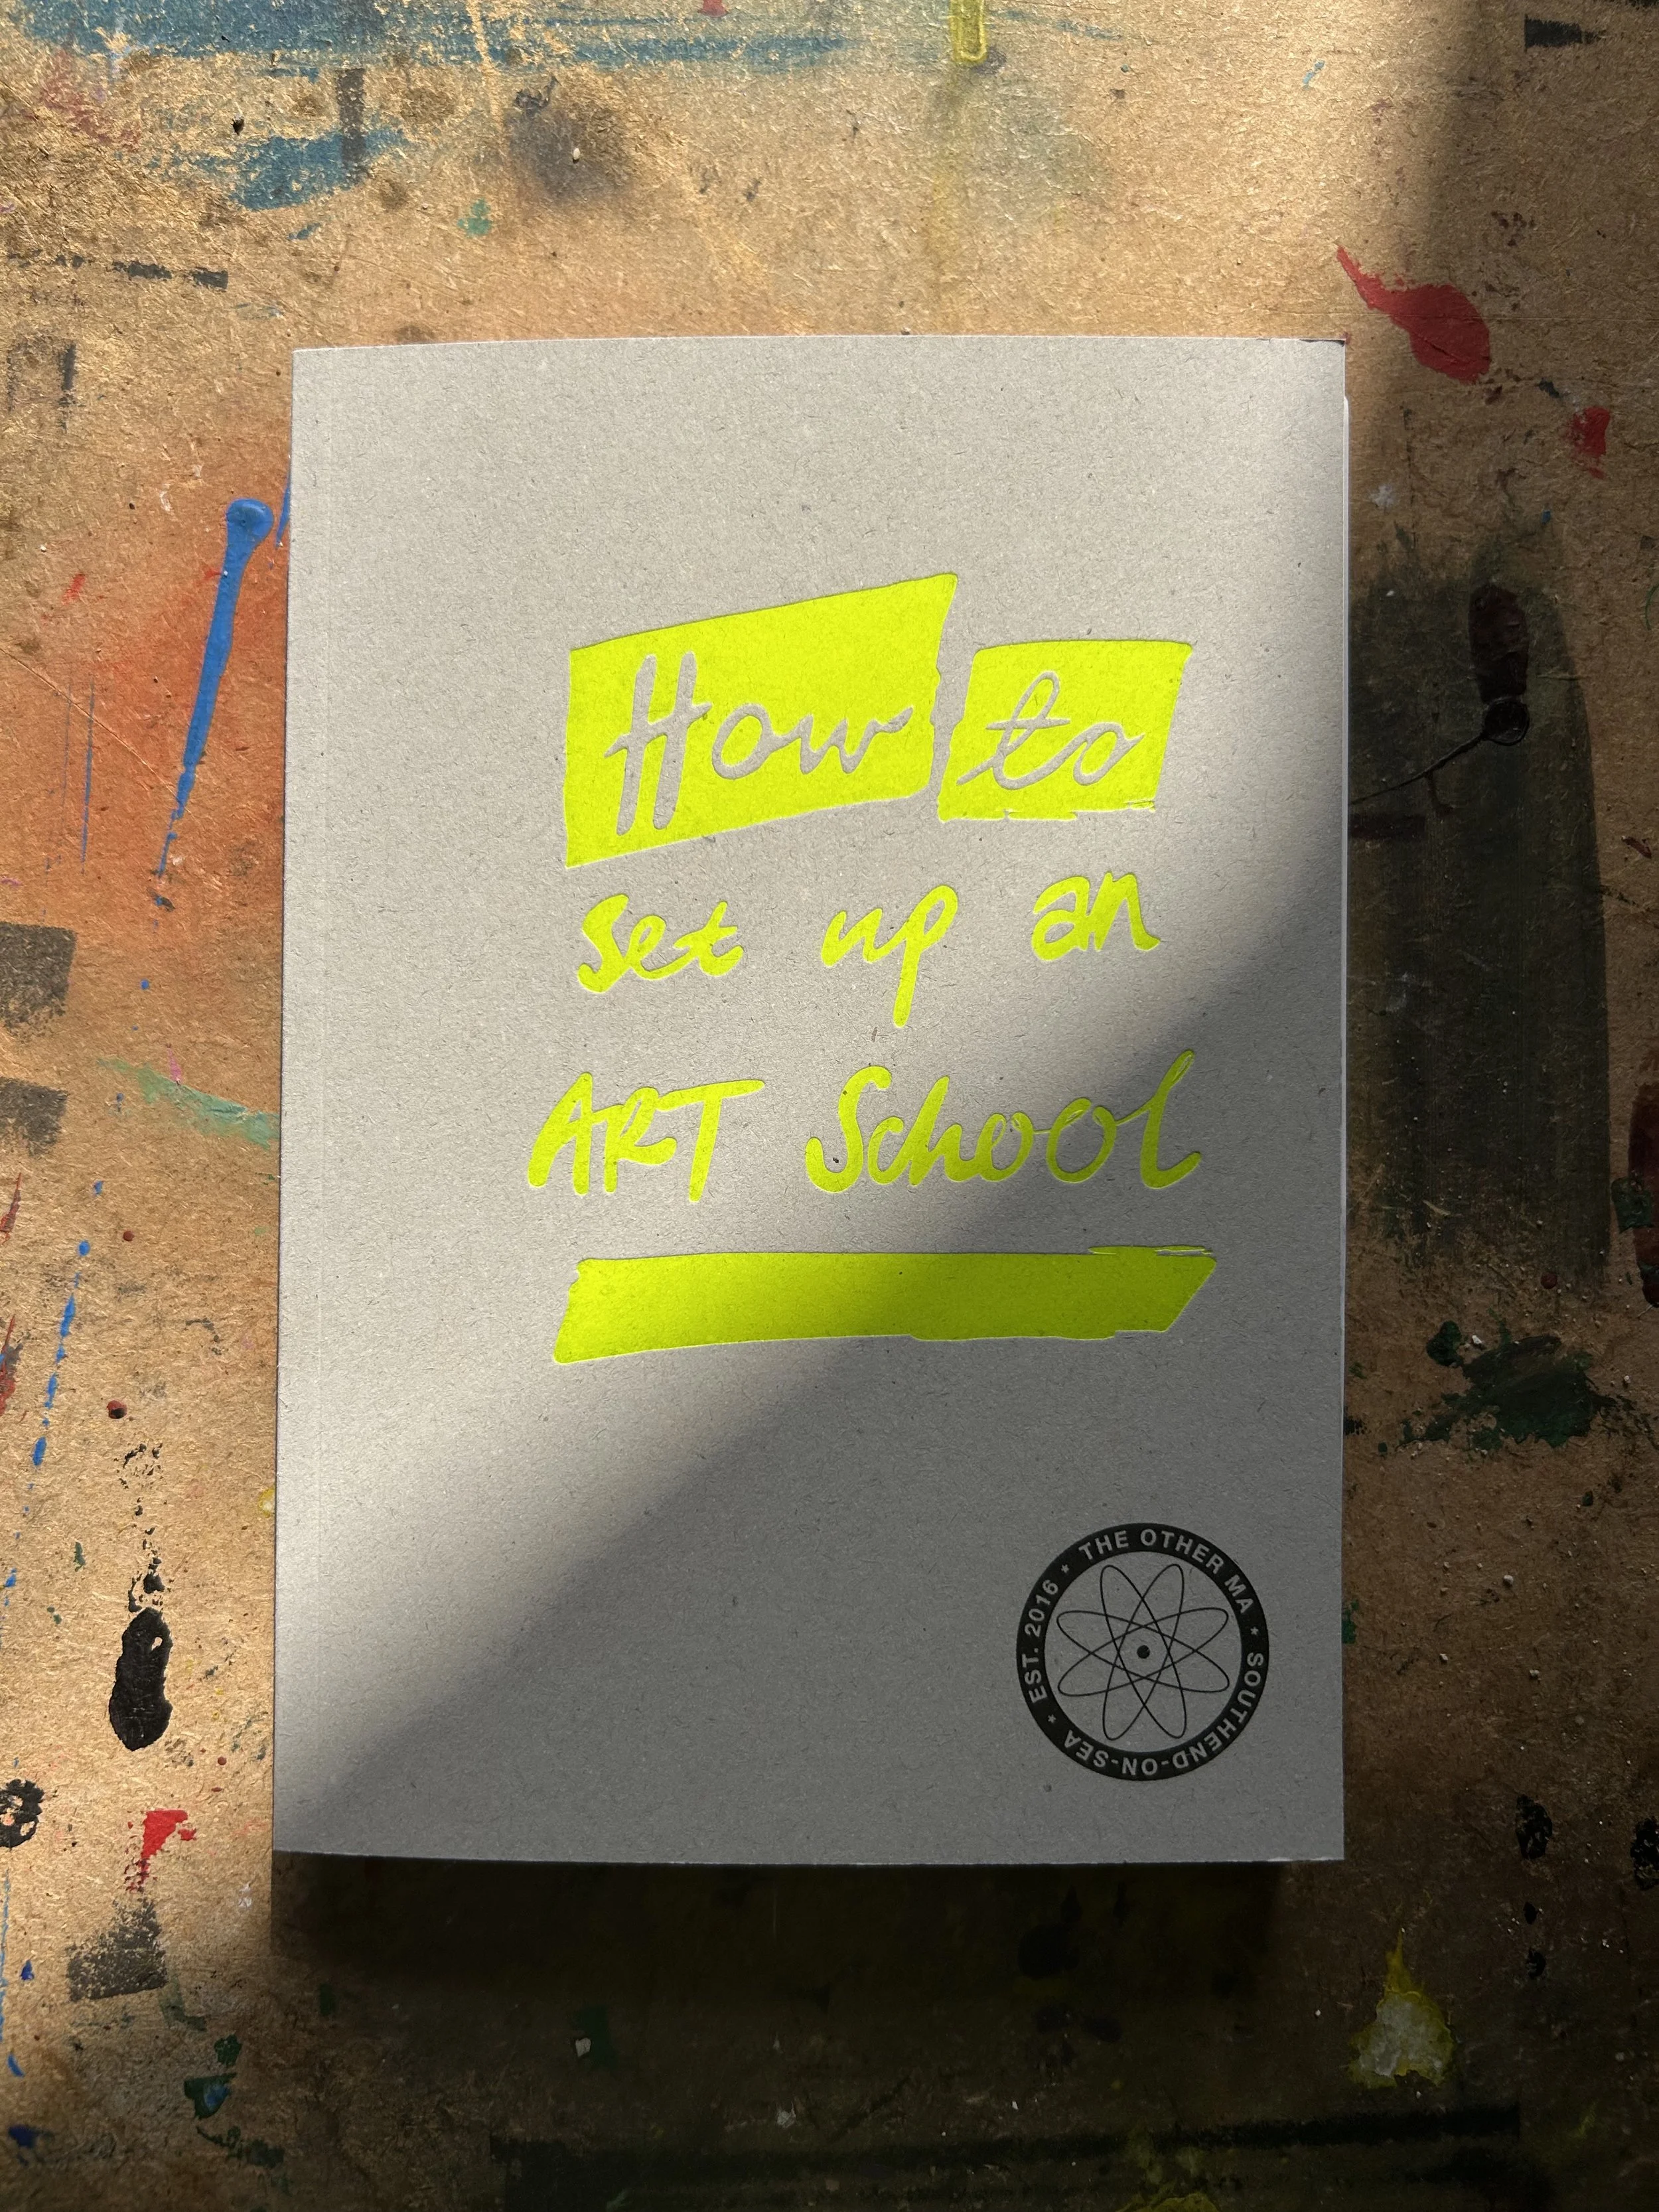 How to
set up an
ART School
EST. 2016 * THE OTHER MA * SOUTHEND-ON-SEA *